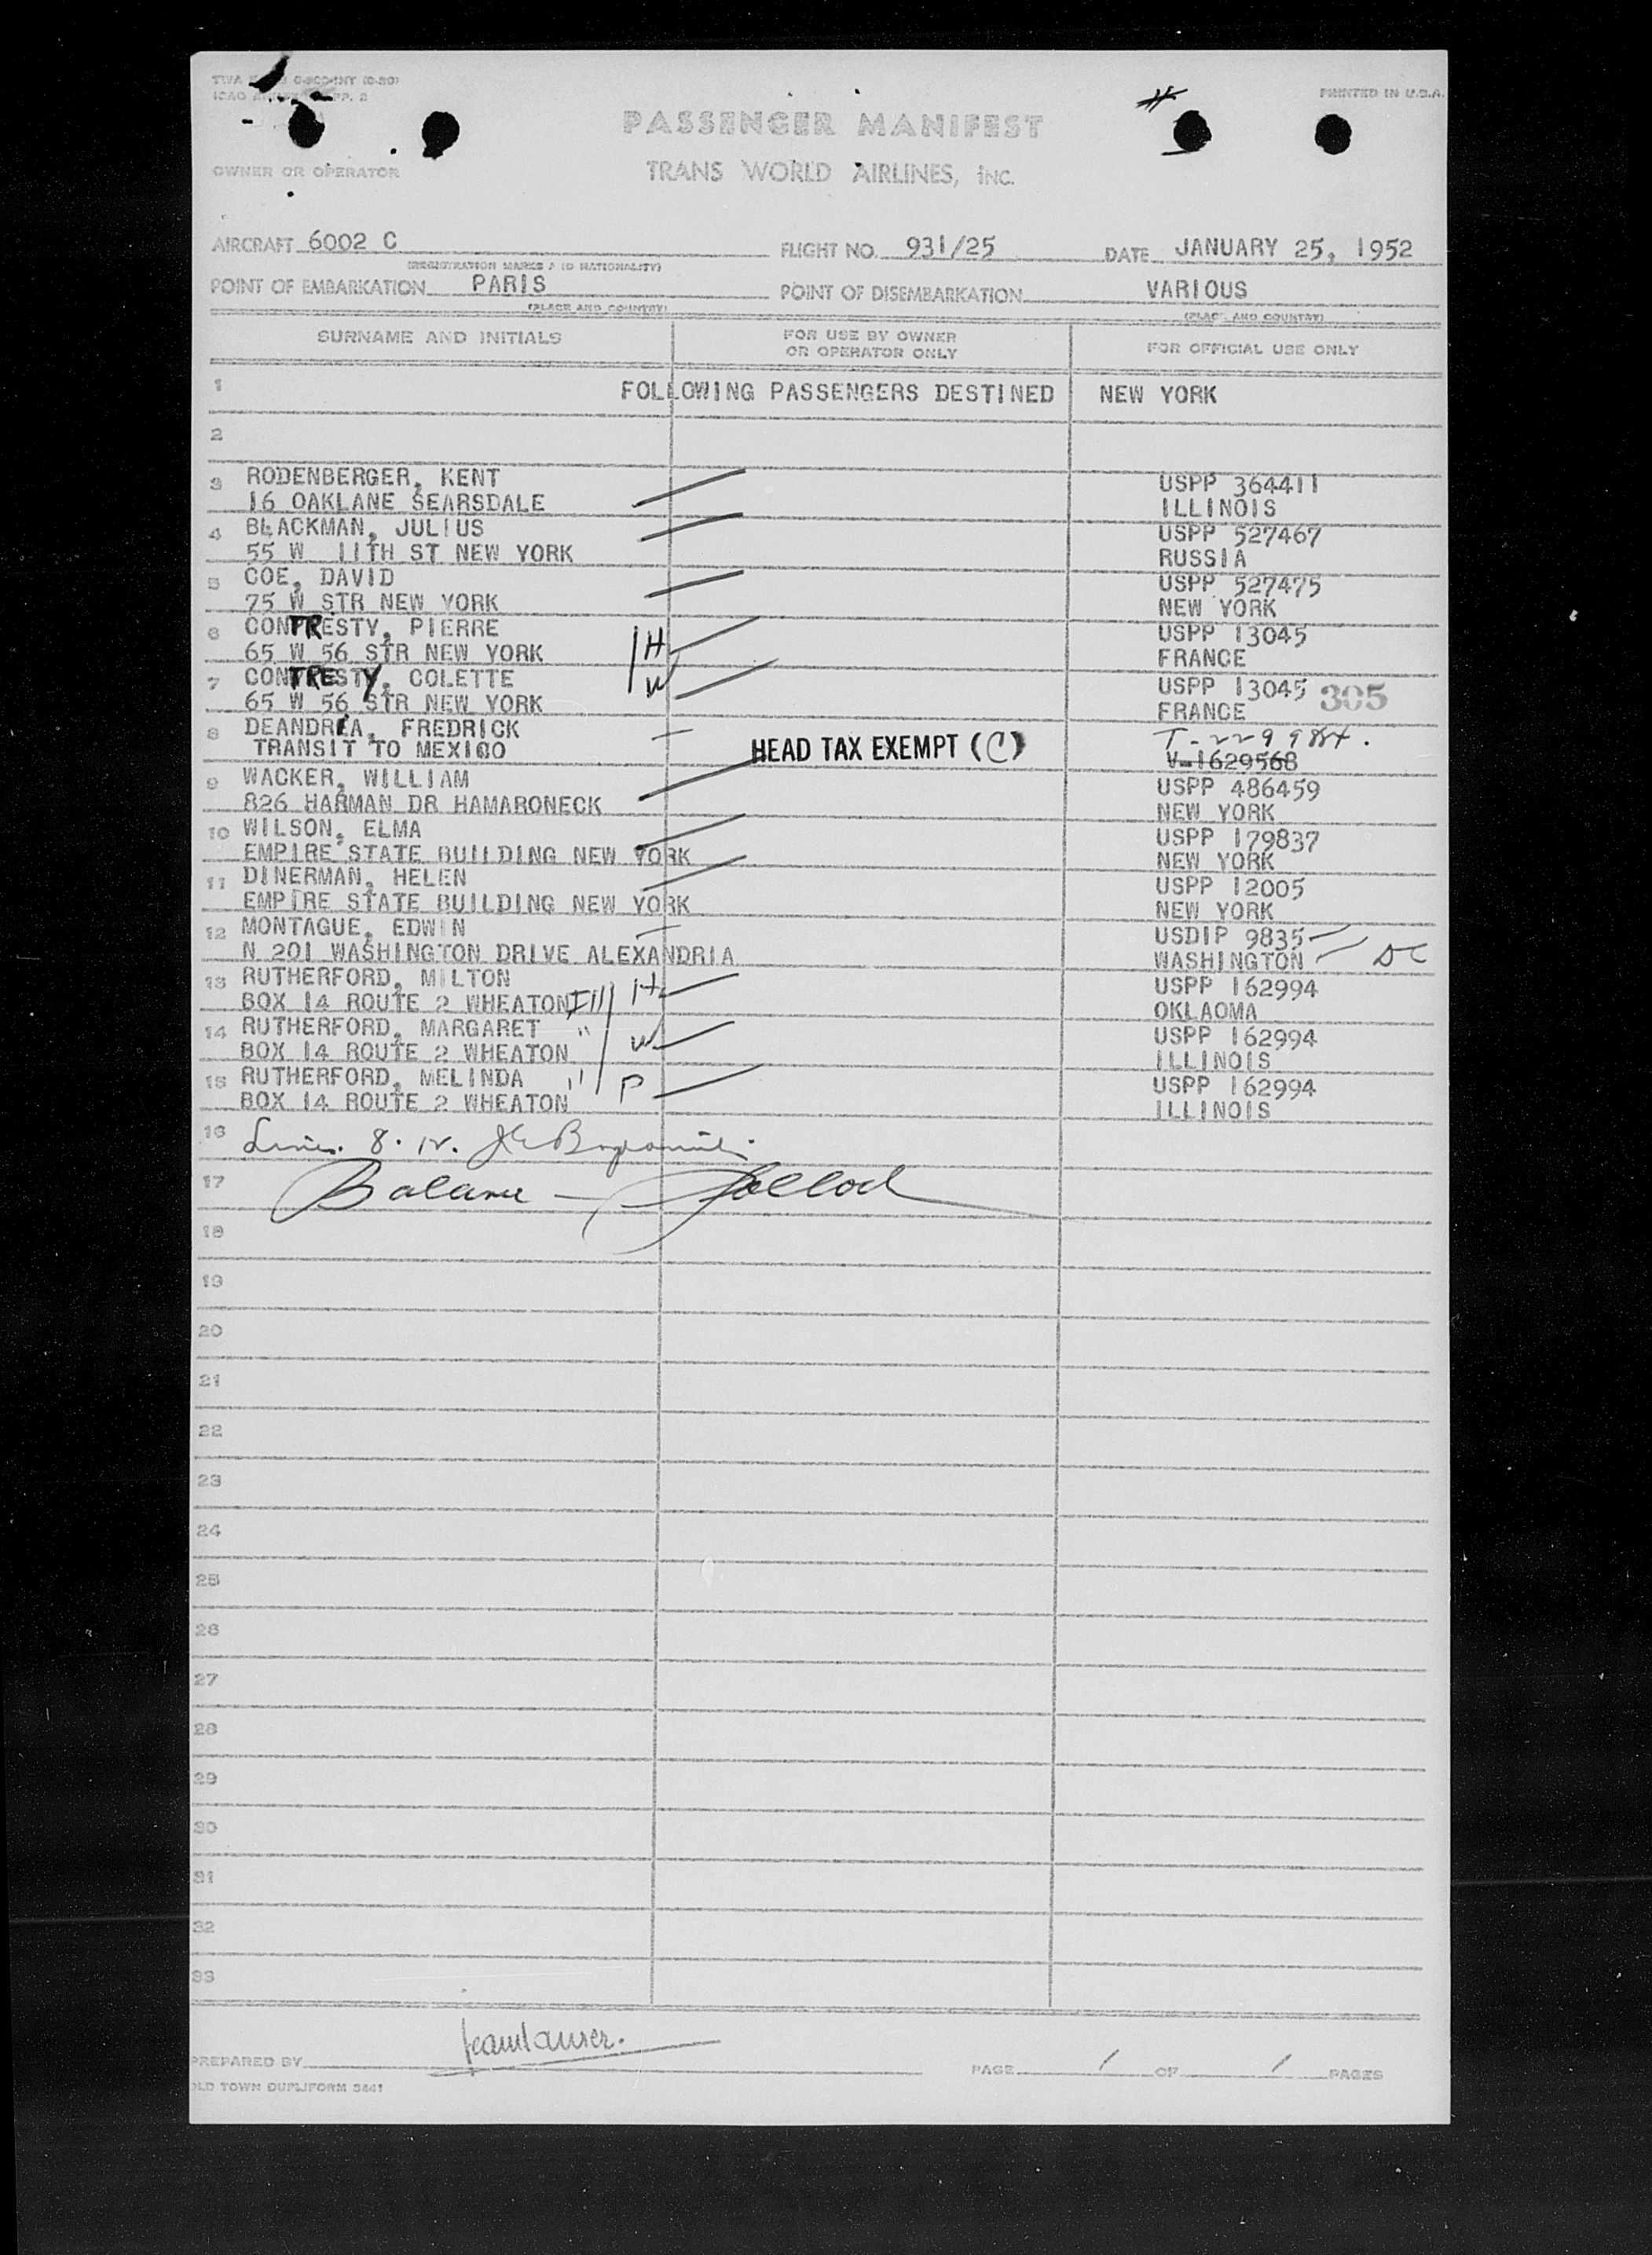 PRINTED IN U.S.A.
PASSENGER MANIFEST
OWNER OR OPERATOR
TRANS WORLD AIRLINES, INC.
AIRCRAFT 6002 C FLIGHT NO. 931/25 DATE JANUARY 25, 1952
(REGISTRATION MARKS AND NATIONALITY)
POINT OF EMBARKATION PARIS POINT OF DISEMBARKATION VARIOUS
(PLACE AND COUNTRY) (PLACE AND COUNTRY)
SURNAME AND INITIALS FOR USE BY OWNER OR OPERATOR ONLY FOR OFFICIAL USE ONLY
1 FOLLOWING PASSENGERS DESTINED NEW YORK
2
3 RODENBERGER, KENT USPP 364411
16 OAKLANE SEARSDALE ILLINOIS
4 BLACKMAN, JULIUS USPP 527467
55 W 11TH ST NEW YORK RUSSIA
5 COE, DAVID USPP 527475
75 W STR NEW YORK NEW YORK
6 CONTRESTY, PIERRE H USPP 13045
65 W 56 STR NEW YORK FRANCE
7 CONTRESTY, COLETTE W USPP 13045 305
65 W 56 STR NEW YORK FRANCE
8 DEANDREA, FREDRICK
TRANSIT TO MEXICO HEAD TAX EXEMPT (C) V-1629568
9 WACKER, WILLIAM USPP 486459
826 HARMAN DR HAMARONECK NEW YORK
10 WILSON, ELMA USPP 179837
EMPIRE STATE BUILDING NEW YORK NEW YORK
11 DINERMAN, HELEN USPP 12005
EMPIRE STATE BUILDING NEW YORK NEW YORK
12 MONTAGUE, EDWIN USDIP 9835
N 201 WASHINGTON DRIVE ALEXANDRIA WASHINGTON DC
13 RUTHERFORD, MILTON H USPP 162994
BOX 14 ROUTE 2 WHEATON Ill OKLAOMA
14 RUTHERFORD, MARGARET " W USPP 162994
BOX 14 ROUTE 2 WHEATON ILLINOIS
15 RUTHERFORD, MELINDA " P USPP 162994
BOX 14 ROUTE 2 WHEATON ILLINOIS
16 Lines. 8. 12.
17 Balance -
18
19
20
21
22
23
24
25
26
27
28
29
30
31
32
33
PREPARED BY PAGE 1 OF 1 PAGES
OLD TOWN DUPLIFORM 5441